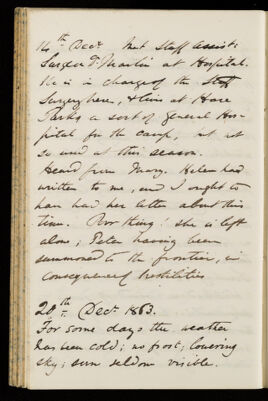 14th Decr. Met Staff Assist:
Surgeon D. Martin at Hospital.
He is in charge of the Staff
Surgery here, & lives at Hore
Parks a sort of general Hos-
pital for the Camp, but not
so used at this season.
Heard from Mary. Helen had
written to me, and I ought to
have had her letter about this
time. Poor thing! she is left
alone; Peter having been
summoned to the frontier, in
consequence of hostilities
20th Decr. 1863.
For some days the weather
has been cold; no frost; lowering
sky; sun seldom visible.